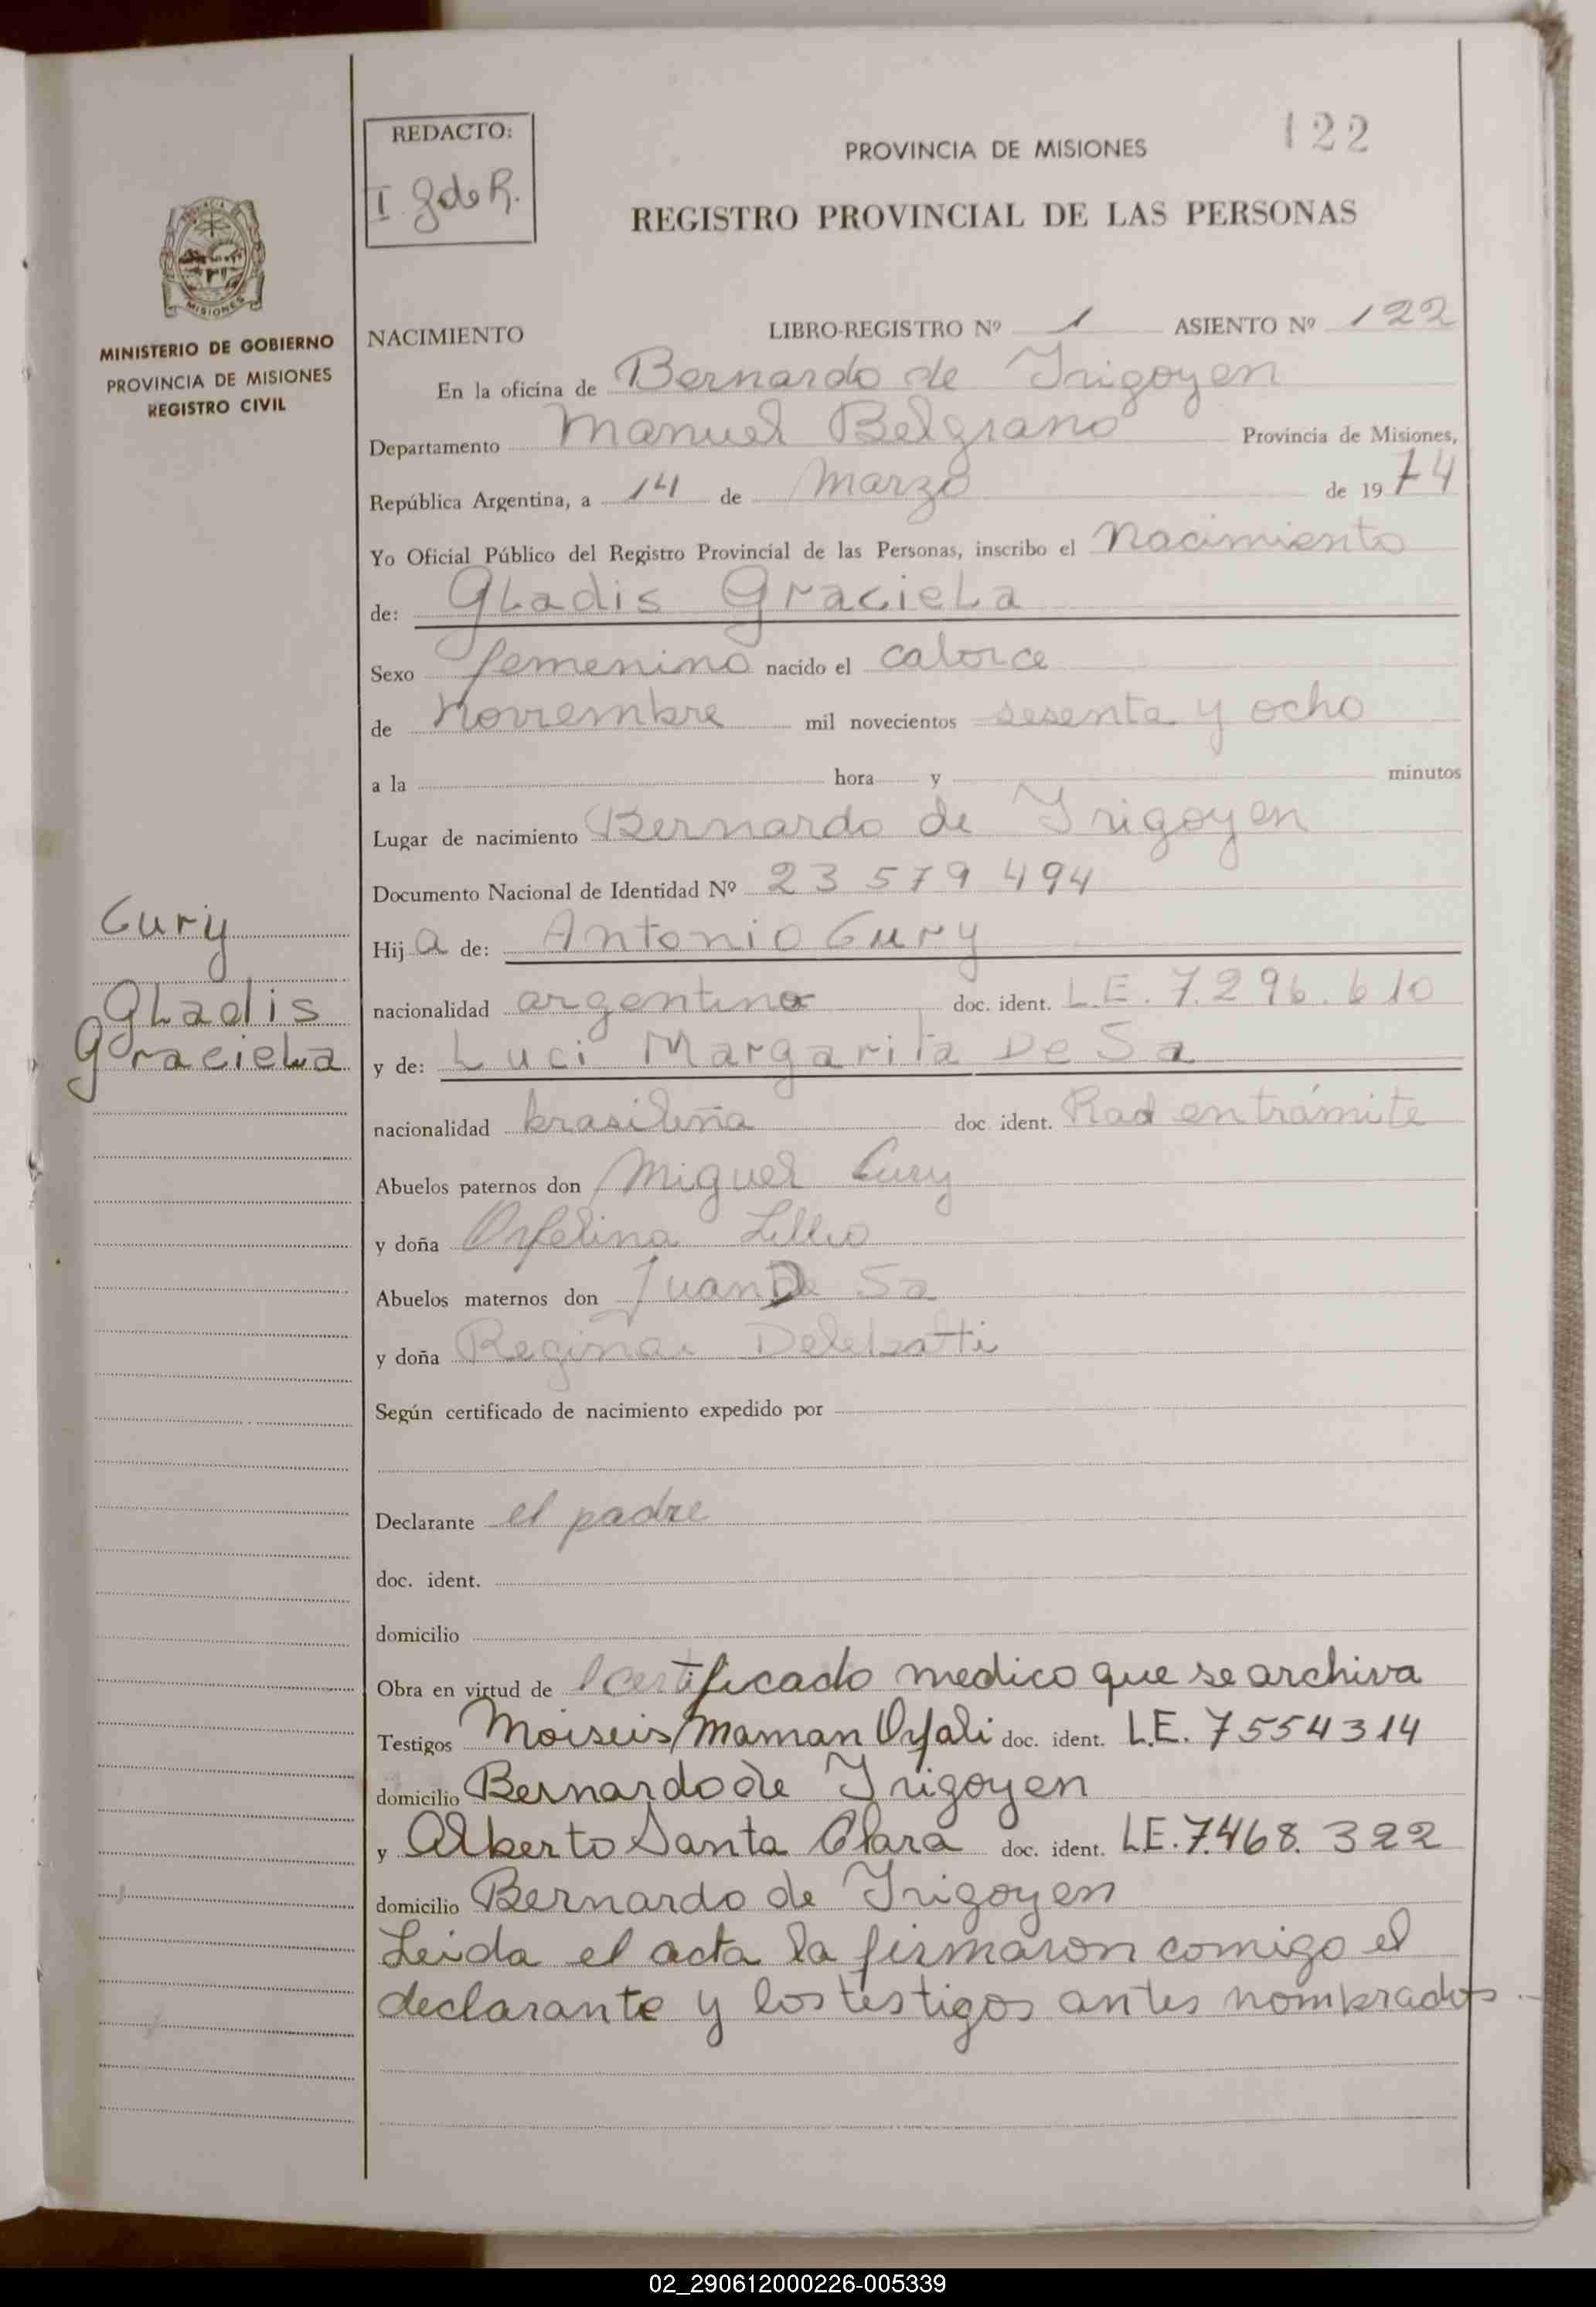 REDACTO:
I. G de R.
PROVINCIA DE MISIONES
122
REGISTRO PROVINCIAL DE LAS PERSONAS
MISIONES
MINISTERIO DE GOBIERNO
PROVINCIA DE MISIONES
REGISTRO CIVIL
NACIMIENTO LIBRO-REGISTRO Nº 1 ASIENTO Nº 122
En la oficina de Bernardo de Irigoyen
Departamento Manuel Belgrano Provincia de Misiones,
República Argentina, a 14 de Marzo de 1974
Yo Oficial Público del Registro Provincial de las Personas, inscribo el nacimiento
de: Gladis Graciela
Sexo femenino nacido el catorce
de noviembre mil novecientos sesenta y ocho
a la hora y minutos
Lugar de nacimiento Bernardo de Irigoyen
Documento Nacional de Identidad Nº 23 579 494
Cury
Gladis
Graciela
Hija de: Antonio Cury
nacionalidad argentino doc. ident. L.E. 7.296.610
y de: Luci Margarita De Sa
nacionalidad brasileña doc ident. Rad en trámite
Abuelos paternos don Miguel Cury
y doña Orfelina
Abuelos maternos don Juan De Sa
y doña Regina
Según certificado de nacimiento expedido por
Declarante el padre
doc. ident.
domicilio
Obra en virtud de certificado medico que se archiva
Testigos Moiseis Maman Orfali doc. ident. L.E. 7554314
domicilio Bernardo de Irigoyen
y Alberto Santa Clara doc. ident. L.E. 7.468.322
domicilio Bernardo de Irigoyen
Leida el acta la firmaron comigo el
declarante y los testigos antes nombrados.
02_290612000226-005339